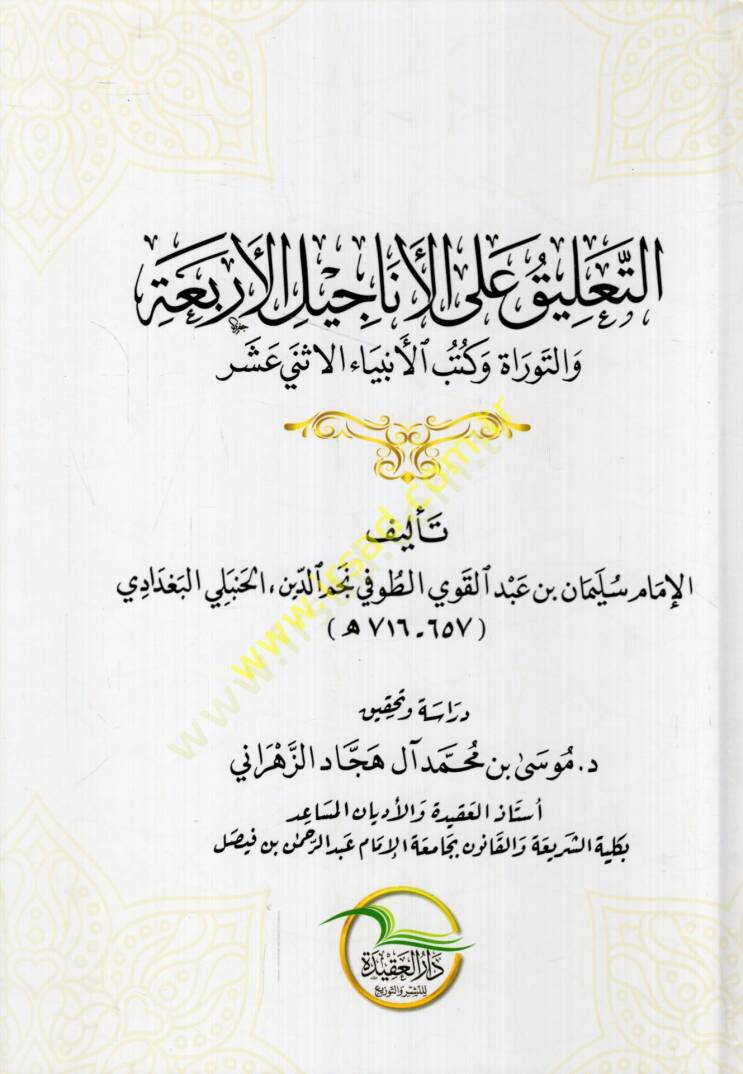 التَّعَلِيقُ عَلَى الأَنَاجِيْلِ الأَرْبَعَةِ
وَالتَّوَرَاة وَكُتُب الأَنبيَاء الاثنَي عَشَر
تَأليف
الإمَام سُلَيمَان بن عَبْد القَوي الطُوفي نَجم الدِّين، الحَنبَلي البَغدَادِي
(٦٥٧ - ٧١٦ هـ)
دِرَاسَة وَتحقِيق
د. مُوسَىٰ بن مُحَمَّد آل هَجَّاد الزَّهْرَاني
أستَاذ العَقيدة وَالأديَان المُسَاعِد
بكلية الشريعَة وَالقَانون بجَامعَة الإمَام عَبدالرَّحمٰن بن فيصَل
دَارُ العَقِيدَة
للنَشر وَالتَوزيع